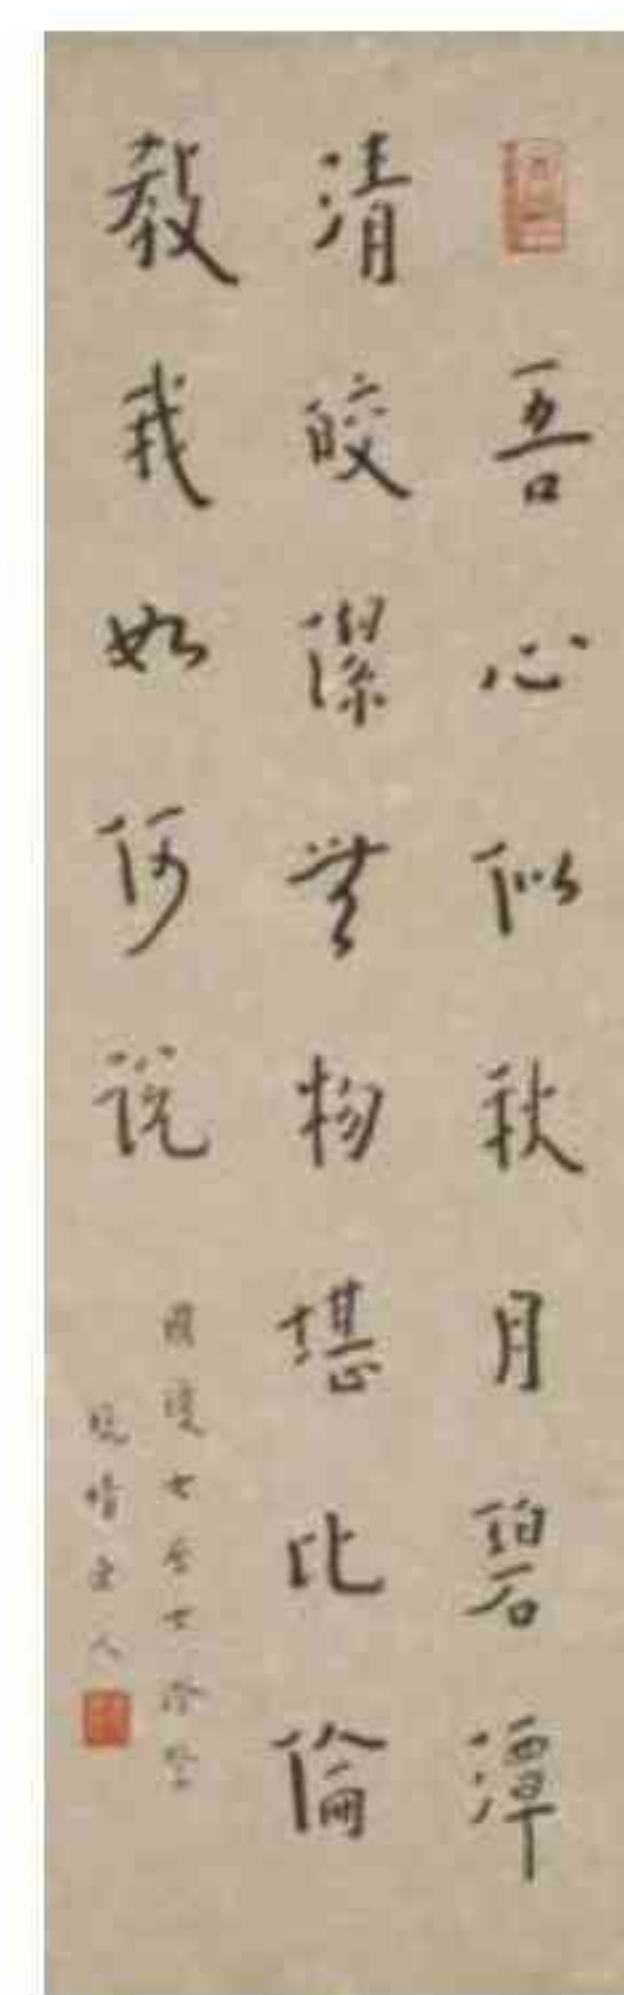 吾心似秋月碧潭
清皎潔無物堪比倫
教我如何說
居士
晚晴老人